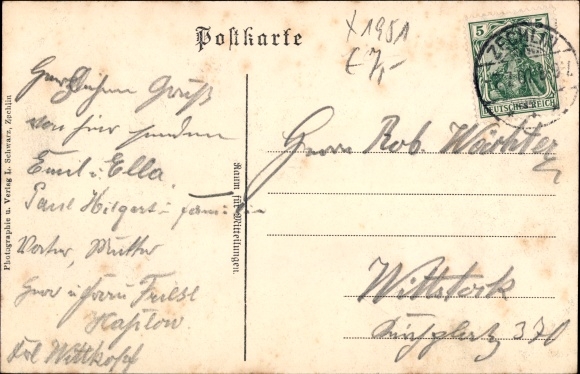 Postkarte
X1951
€ 7,-
5 5
ZECHLIN
DEUTSCHES REICH
Herzlichen Gruß
von hier senden
Emil u. Ella
Paul Hilgert u. Familie
Vater, Mutter
Herr u. Frau
Frl Wittkopf
Raum für Mitteilungen.
Photographie u. Verlag L. Schwarz, Zechlin
Herrn Rob. Wächter
Wittstock
Kirchplatz 370